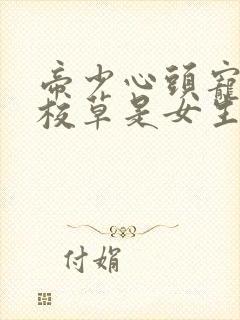 帝少心頭寵
校草是女生
付娟